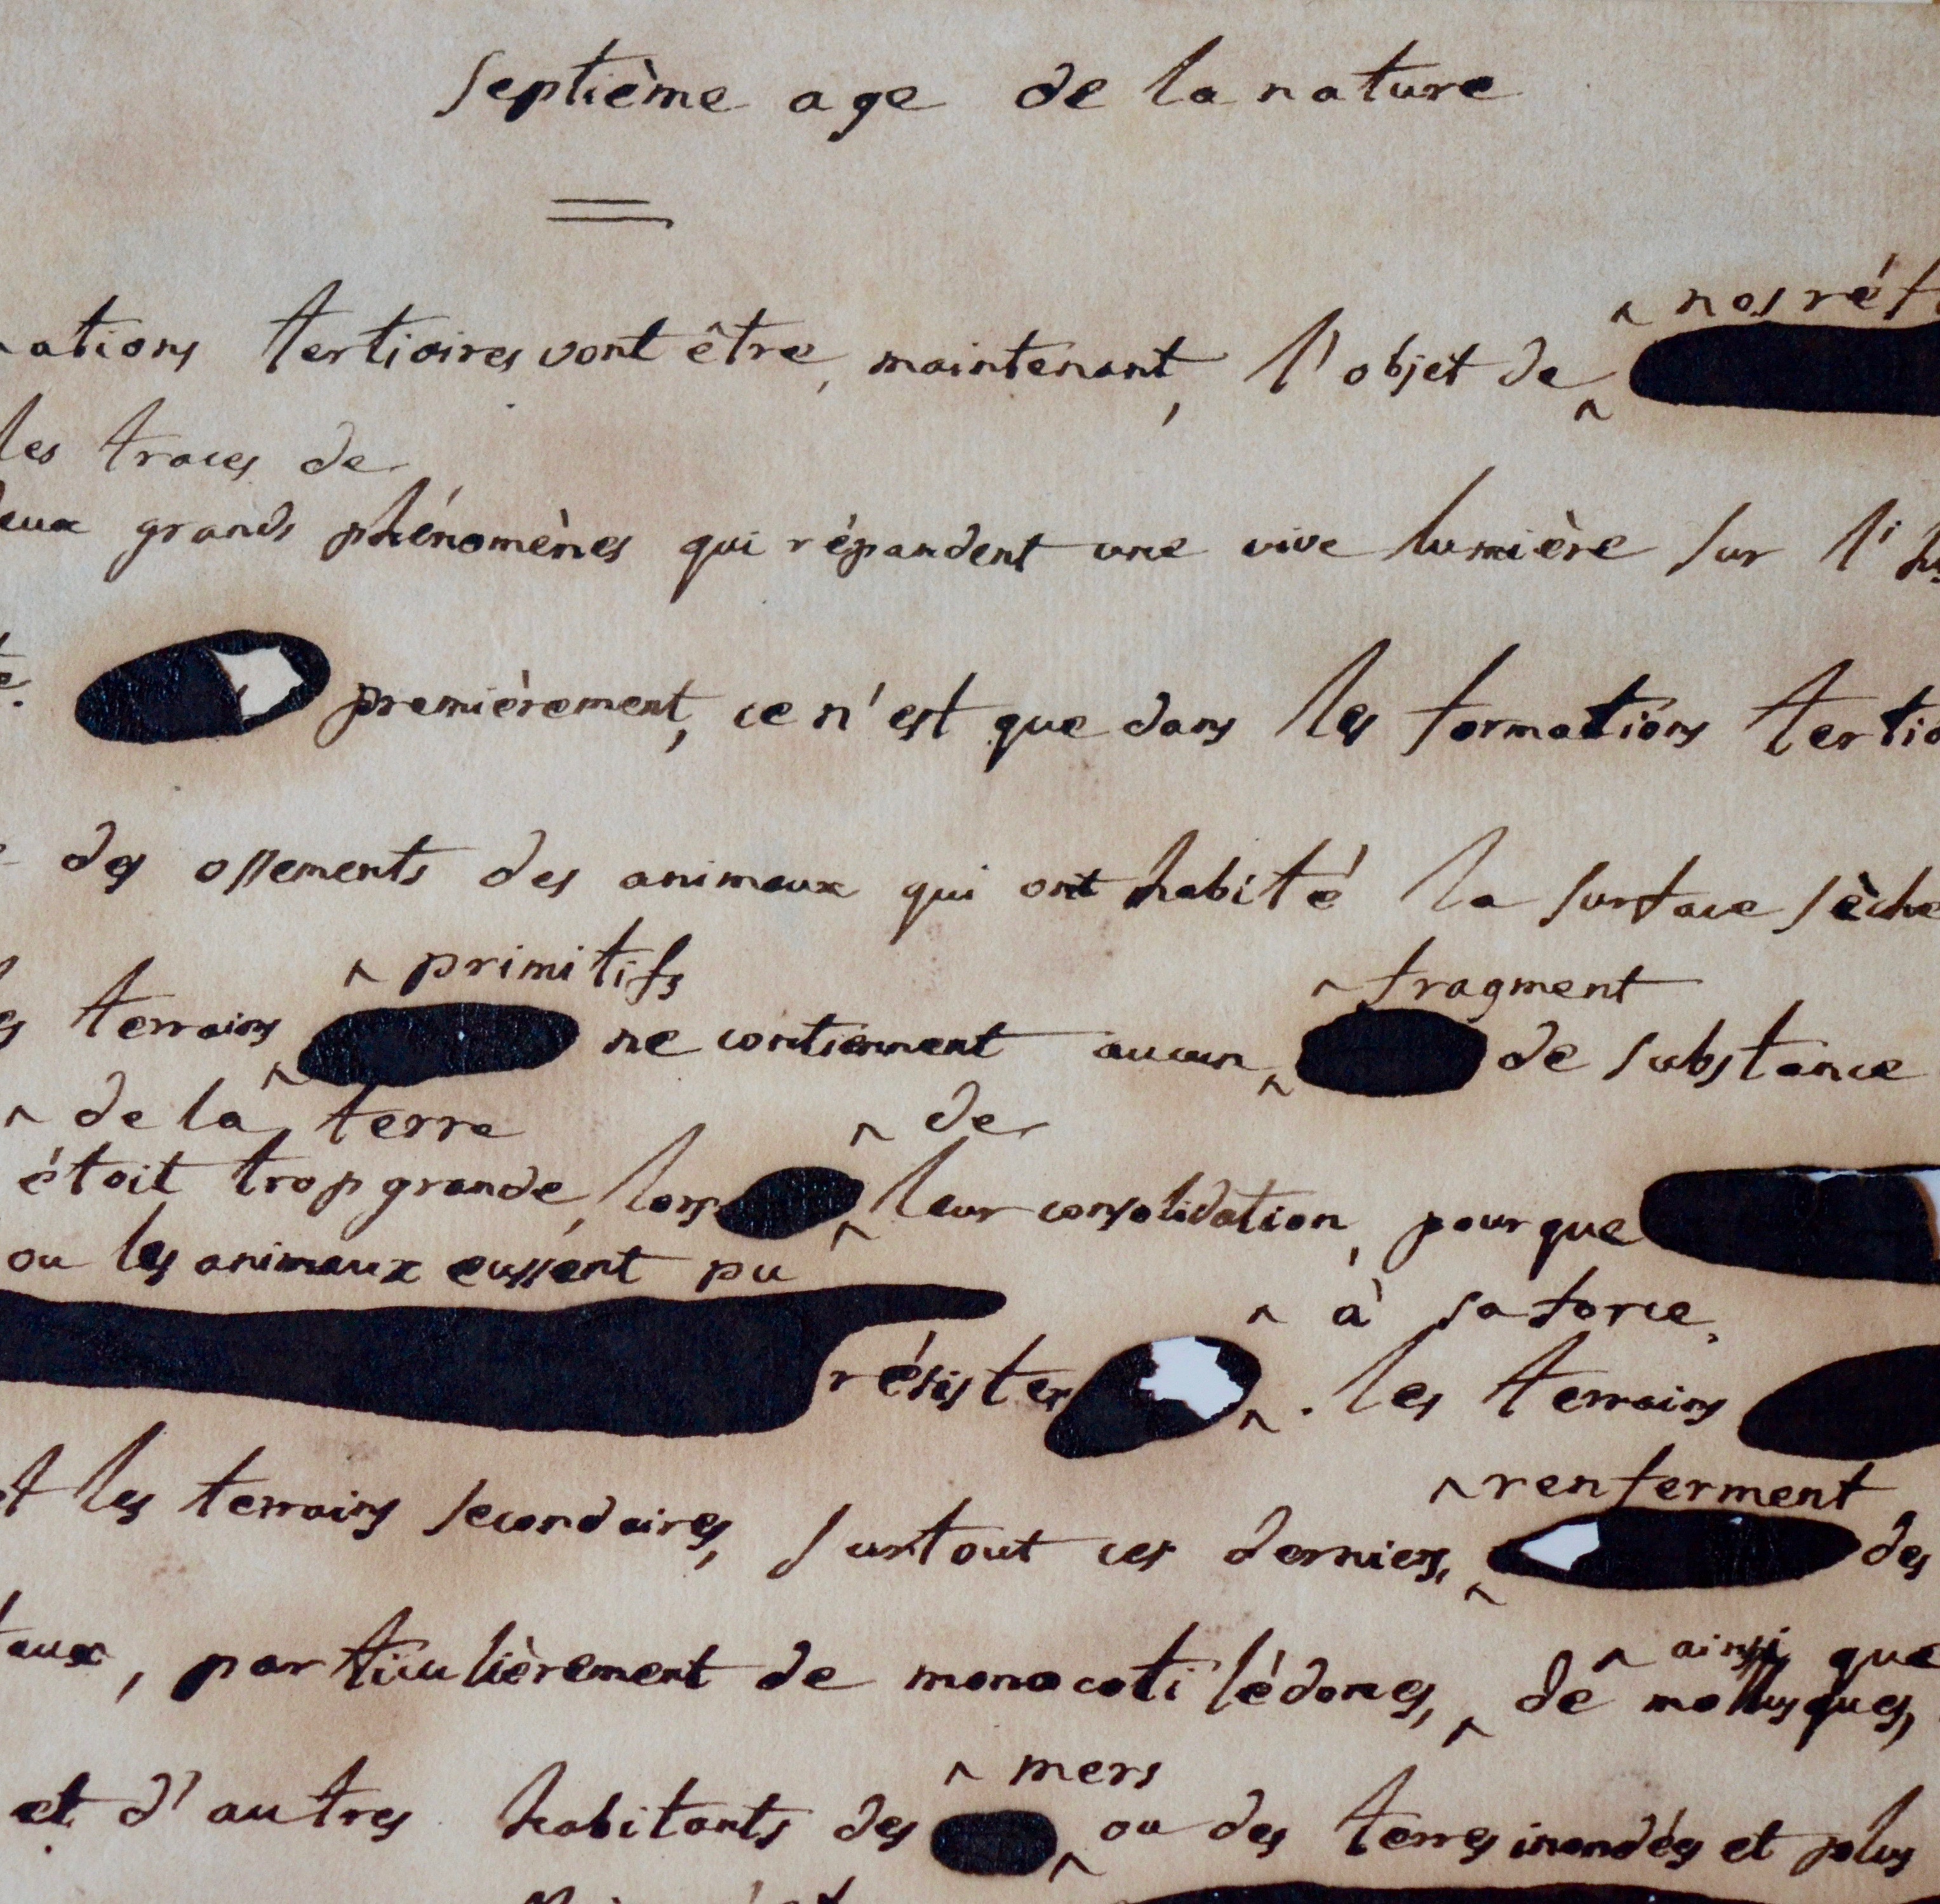 septième age de la nature
nos réf
ations tertiaires vont être, maintenant, l'objet de
les traces de
deux grands phénomènes qui répandent une vive lumière sur l'
premièrement, ce n'est que dans les formations tertia
des ossements des animaux qui ont habité la surface sèche
primitifs fragment
terrains ne contiennent aucun de substance
de la terre de
étoit trop grande, lors leur consolidation, pour que
ou les animaux eussent pu
à sa force,
résister . les terrains
et les terrains secondaires, surtout ces derniers, des
renferment
taux, particulièrement de monocotilédones, de mollusques,
ainsi que
mers
et d'autres habitants des ou des terres inondées et plus